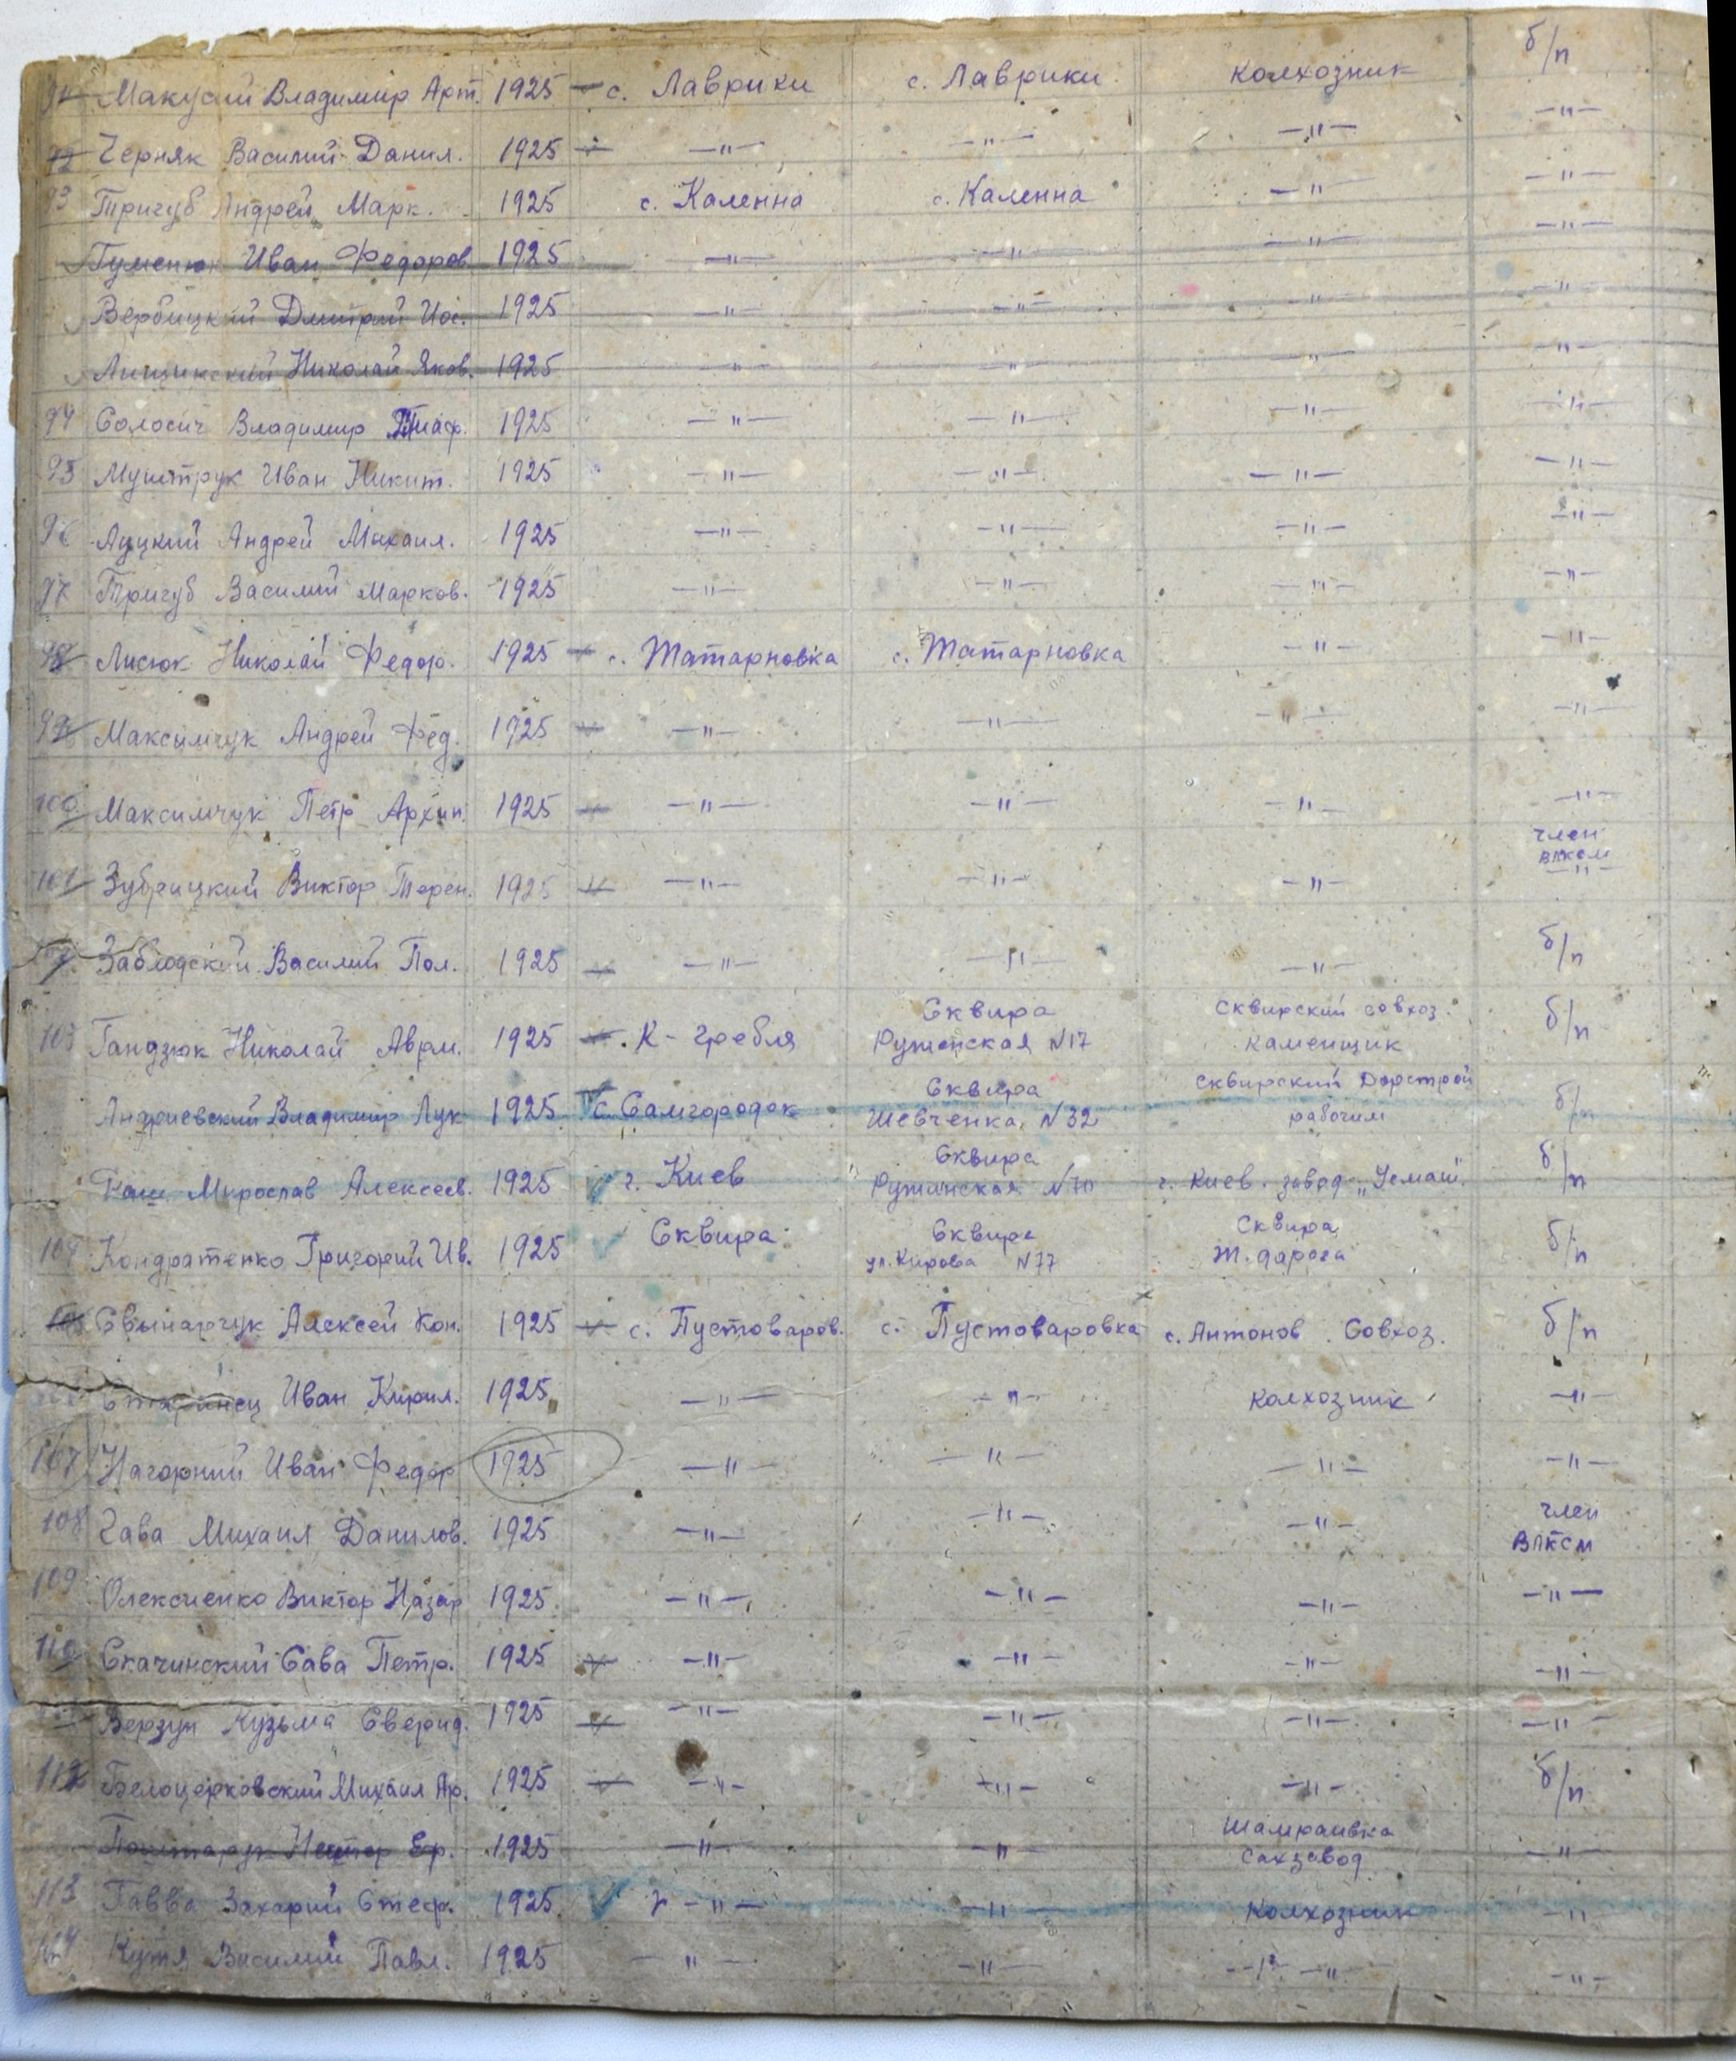 91 Макусий Владимир Арт. 1925 с. Лаврики с. Лаврики колхозник б/п
92 Черняк Василий Данил. 1925 —"— —"— —"— —"—
93 Тригуб Андрей Марк. 1925 с. Каленна с. Каленна —"— —"—
Гуменюк Иван Федоров 1925 —"— —"— —"— —"—
Вербицкий Дмитрий Иос. 1925 —"— —"— —"— —"—
Николай Яков. 1925 —"— —"— —"— —"—
94 Солосич Владимир 1925 —"— —"— —"— —"—
95 Муштрук Иван Никит. 1925 —"— —"— —"— —"—
96 Луцкий Андрей Михаил. 1925 —"— —"— —"— —"—
97 Тригуб Василий Марков. 1925 —"— —"— —"— —"—
98 Лисюк Николай Федор. 1925 с. Татарновка с. Татарновка —"— —"—
99 Максимчук Андрей Фед. 1925 —"— —"— —"— —"—
100 Максимчук Петр Архип. 1925 —"— —"— —"— —"—
член
влксм
101 Зубрицкий Виктор Терен. 1925 —"— —"— —"— —"—
Заблодский Василий Пол. 1925 —"— —"— —"— б/п
Сквира Сквирский совхоз.
103 Гандзюк Николай Аврам. 1925 К-гребля Ружинская N17 каменщик б/п
Сквира Сквирский Дорстрой
Андриевский Владимир Лук 1925 с. Самгородок Шевченка, N32 рабочим б/п
Сквира
Мирослав Алексеев. 1925 г. Киев Ружинская N70 г. Киев. завод б/п
Сквира Сквира Сквира
Кондратенко Григорий Ив. 1925 ул. Кирова N77 Ж. дорога б/п
Свынарчук Алексей Кон. 1925 с. Пустоваров. с. Пустоваровка с. Антонов Совхоз. б/п
Старинец Иван Кирил. 1925 —"— —"— колхозник —"—
107 Нагорний Иван Федор 1925 —"— —"— —"— —"—
108 Чава Михаил Данилов. 1925 —"— —"— —"— член
ВЛКСМ
109 Олексиенко Виктор Назар 1925 —"— —"— —"— —"—
110 Скачинский Сава Петр. 1925 —"— —"— —"— —"—
Верзун Кузьма Сверид. 1925 —"— —"— —"— —"—
112 Белоцерковский Михаил Ар. 1925 —"— —"— —"— б/п
Шамраивка
Нестор Еф. 1925 —"— —"— сахзавод —"—
113 Гавва Захарий Стеф. 1925 —"— —"— колхозник —"—
114 Кутя Василий Павл. 1925 —"— —"— —"— —"—